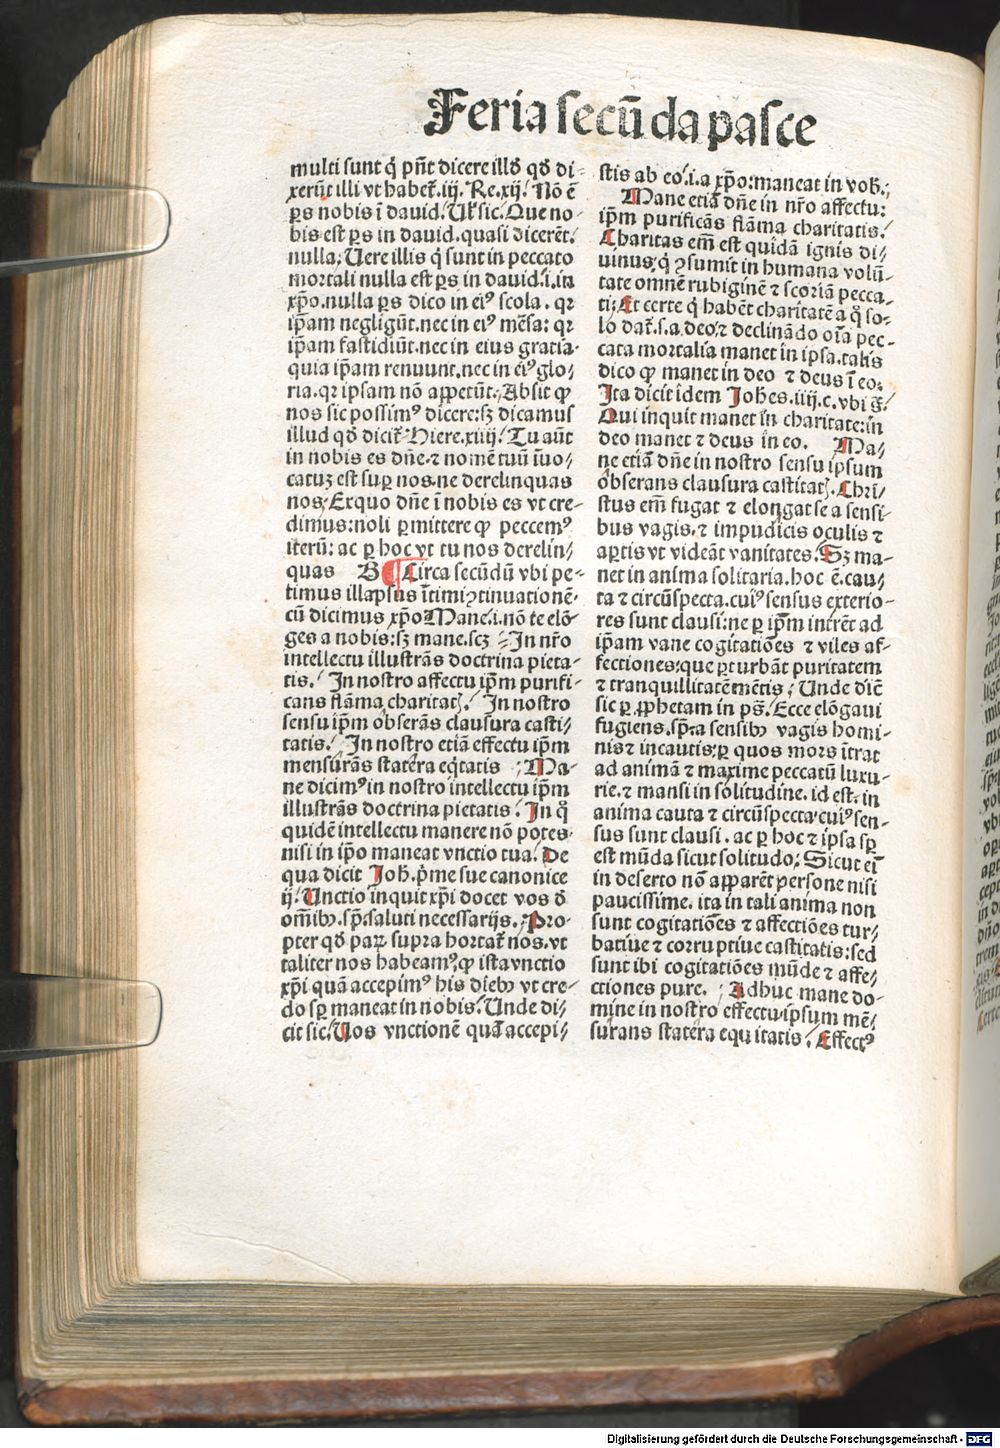 Feria secūda pasce
multi sunt q̇ pn̄t dicere illḋ qḋ di⸗
xerūt illi vt habet̄. iij. Re. xij. Nō ē
ꝑs nobis ī dauid. Ul̄ sic. Que no⸗
bis est ꝑs in dauid. quasi dicerēt.
nulla; Uere illis q̇ sunt in peccato
mortali nulla est ꝑs in dauid. i. in
xp̄o. nulla ꝑs dico in eiꝰ scola. qꝛ
ip̄am negligūt. nec in eiꝰ mēsa: qꝛ
ip̄am fastidiūt. nec in eius gratia.
quia ip̄am renuunt. nec in eiꝰ glo/
ria. qꝛ ipsam nō appetūt. Absit ꝙ
nos sic possimꝰ dicere: sꝫ dicamus
illud qḋ dicit̄ Hiere. xiiij. Tu aūt
in nobis es dn̄e. ⁊ nomē tuū īuo/
catuꝫ est suꝑ nos. ne derelinquas
nos. Exquo dn̄e ī nobis es vt cre⸗
dimus: noli ꝑmittere ꝙ peccemꝰ
iterū: ac ꝑ hoc vt tu nos derelin/
quas B ¶ Circa secūdū vbi pe⸗
timus illapsus ītimi ꝯtinuationē.
cū dicimus xp̄o Mane. i. nō te elō⸗
ges a nobis: sꝫ mane. scꝫ In nr̄o
intellectu illustrās doctrina pieta⸗
tis. In nostro affectu ip̄m purifi⸗
cans flāma charitatꝭ. In nostro
sensu ip̄m obserās clausura casti/
tatis. In nostro etiā effectu ip̄m
mensurās statera eq̇tatis Ma⸗
ne dicimꝰ in nostro intellectu ip̄m
illustrās doctrina pietatis. In q̊
quidē intellectu manere nō potes.
nisi in ip̄o maneat vnctio tua. De
qua dicit Joh̄. p̄me sue canonice
ij. Unctio inquit xp̄i docet vos ḋ
om̄ibꝰ. sp̄. saluti necessarijs. Pro⸗
pter qḋ paꝝ supra hortat̄ nos. vt
taliter nos habeamꝰ, ꝙ ista vnctio
xp̄i quā accepimꝰ his diebꝰ vt cre⸗
do sꝑ maneat in nobis. Unde di/
cit sic. Uos vnctionē quā accepi/
stis ab eo. i. a xp̄o: maneat in vob̄.;
Mane etiā dn̄e in nr̄o affectu:
ip̄m purificās flāma charitatis.
Charitas em̄ est quidā ignis di/
uinus, q̇ ꝯsumit in humana volū⸗
tate omnē rubiginē ⁊ scoriā pecca⸗
ti; Et certe q̇ habēt charitatē a q̊ so⸗
lo dat̄. s. a deo, ⁊ declinādo oīa pec⸗
cata mortalia manet in ipsa. talis
dico ꝙ manet in deo ⁊ deus ī eo.
Ita dicit idem Joh̄es. iiij. c. vbi s̄.
Qui inquit manet in charitate: in
deo manet ⁊ deus in eo. Ma/
ne etiā dn̄e in nostro sensu ipsum
obserans clausura castitatꝭ. Chri/
stus em̄ fugat ⁊ elongat se a sensi⸗
bus vagis. ⁊ impudicis oculis ⁊
aꝑtis vt videāt vanitates. Sꝫ ma⸗
net in anima solitaria. hoc ē. cau/
ta ⁊ circūspecta. cuiꝰ sensus exterio⸗
res sunt clausi: ne ꝑ ip̄m intrēt ad
ip̄am vane cogitatiōes ⁊ viles af⸗
fectiones: que ꝑturbāt puritatem
⁊ tranquillitatē mētis; Unde d̄ic̄
sic ꝑ ꝓphetam in ps̄. Ecce elōgaui
fugiens. sp̄ra sensibꝰ vagis homi⸗
nis ⁊ incautis: ꝑ quos mors ītrat
ad animā ⁊ maxime peccatū luxu⸗
rie. ⁊ mansi in solitudine. id est. in
anima cauta ⁊ circūspecta cuiꝰ sen⸗
sus sunt clausi. ac ꝑ hoc ⁊ ipsa sꝑ
est mūda sicut solitudo; Sicut ei̅
in deserto nō apparēt persone nisi
paucissime. ita in tali anima non
sunt cogitatiōes ⁊ affectiōes tur/
batiue ⁊ corruptiue castitatis: sed
sunt ibi cogitatiōes mūde ⁊ affe/
ctiones pure. ; Adhuc mane do⸗
mine in nostro effectu ipsum mē/
surans statera equitatis. Effectꝰ
Digitalisierung gefördert durch die Deutsche Forschungsgemeinschaft - DFG